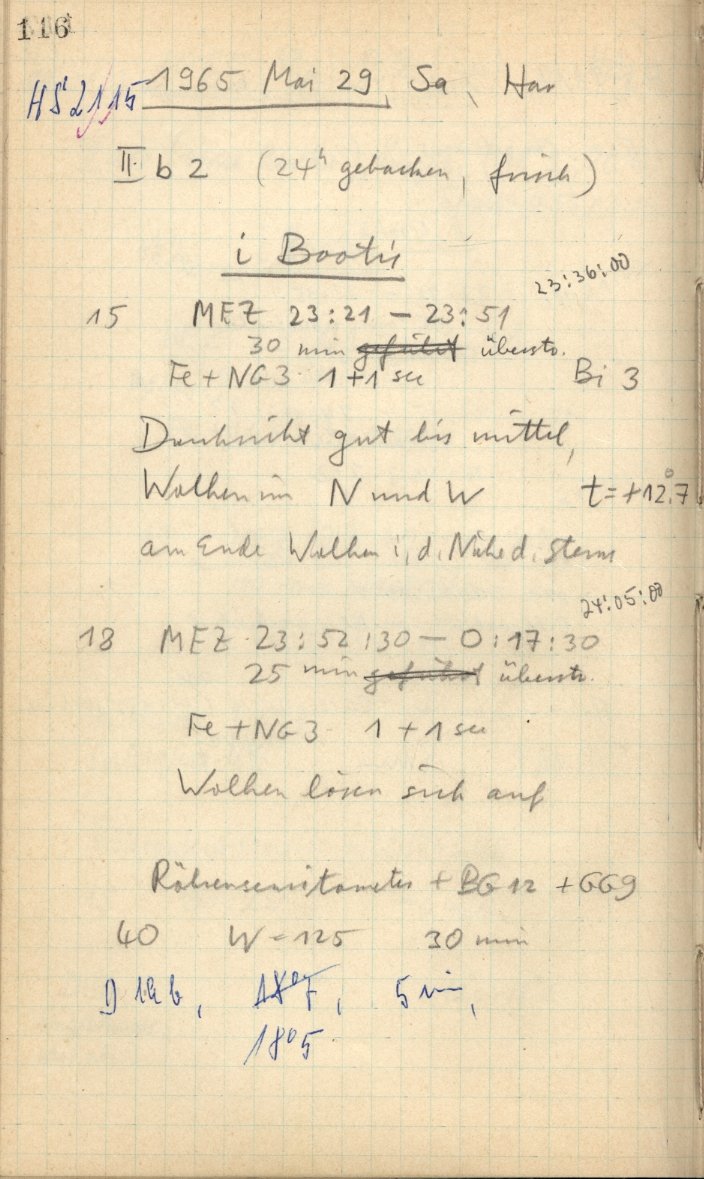 116
HS 2115 1965 Mai 29, Sa, Har
II b 2 (24h gebacken, frisch)
i Bootis
23:36:00
15 MEZ 23:21 – 23:51
30 min geführt überstr.
Fe + NG3 1+1 sec Bi 3
Durchsicht gut bis mittel,
Wolken im N und W t = +12°.7
am Ende Wolken i. d. Nähe d. Sterns
24:05:00
18 MEZ 23:52:30 – 0:17:30
25 min geführt überstr.
Fe + NG3 1 + 1 sec
Wolken lösen sich auf
Röhrensensitometer + BG12 + GG9
40 W = 125 30 min
D 19b, 5 min,
18°5